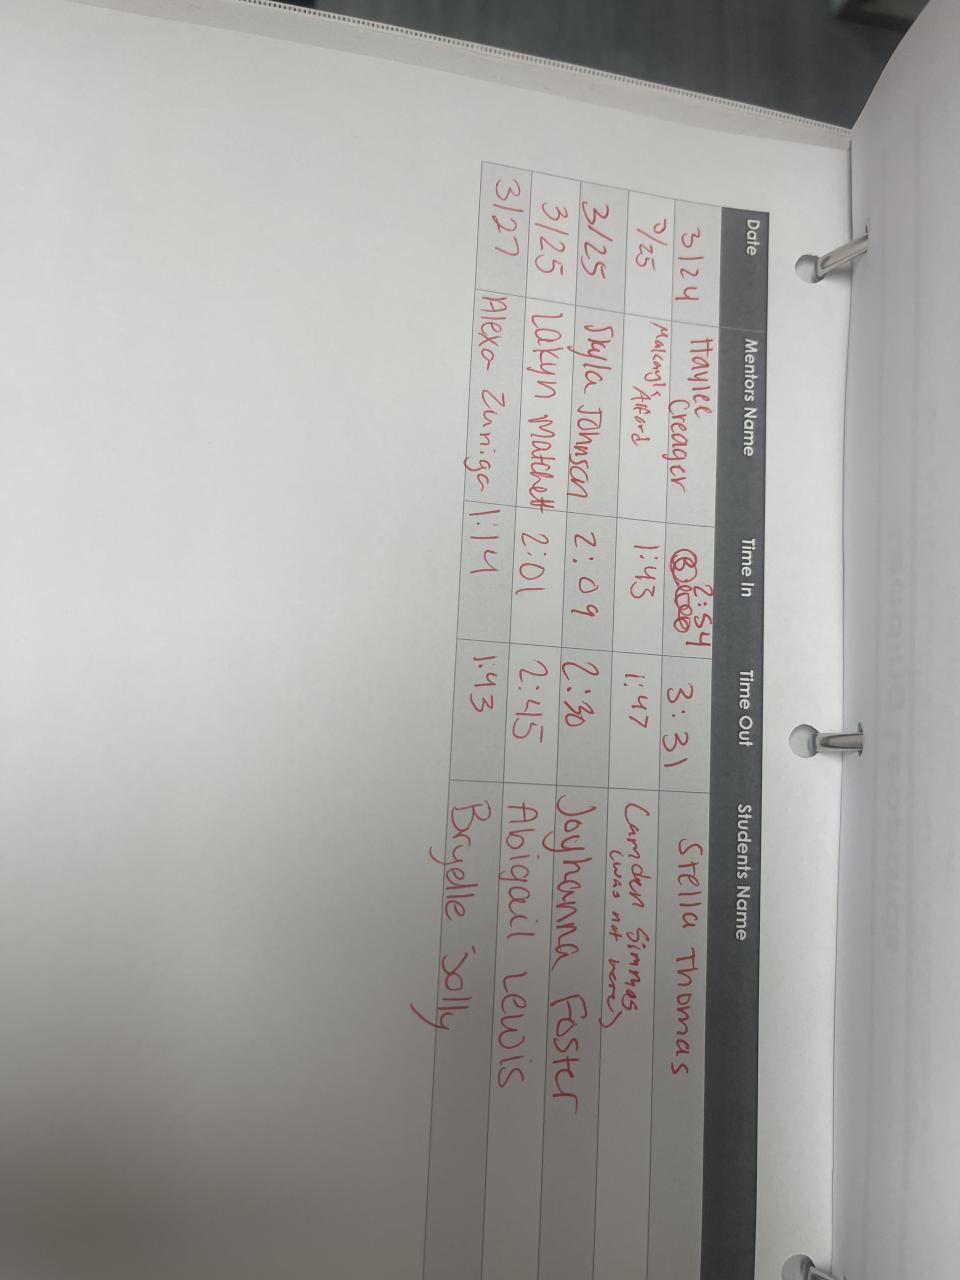 Date Mentors Name Time In Time Out Students Name
3/24 Haylee Creager 2:54 3:31 Stella Thomas
3/25 Alford 1:43 1:47 Camden Simmas (was not here)
3/25 Skyla Johnson 2:09 2:30 Joyhanna Foster
3/25 Lakyn Matchett 2:01 2:45 Abigail Lewis
3/27 Alexa Zuniga 1:14 1:43 Bryelle Jolly